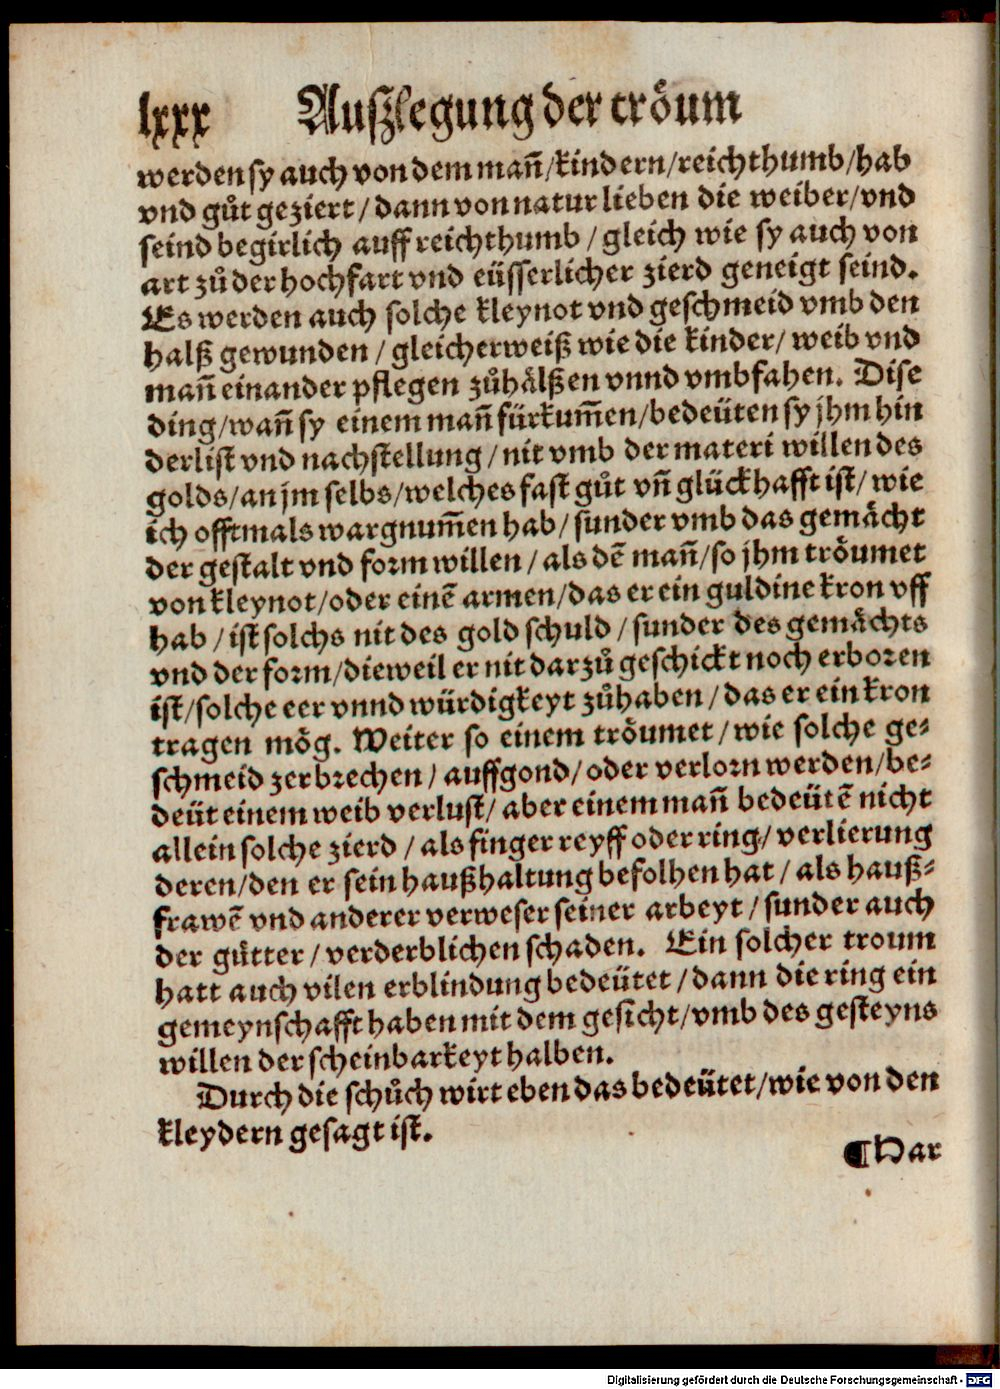 lxxx Außlegung der troͤum
werden sy auch von dem mañ/kindern/reichthumb/hab
vnd guͦt geziert/dann von natur lieben die weiber/vnd
seind begirlich auff reichthumb/gleich wie sy auch von
art zuͦ der hochfart vnd eüsserlicher zierd geneigt seind.
Es werden auch solche kleynot vnd geschmeid vmb den
halß gewunden/gleicherweiß wie die kinder/weib vnd
mañ einander pflegen zuͦhaͤlßen vnnd vmbfahen. Dise
ding/wañ sy einem mañ fürkum̃en/bedeüten sy jhm hin
derlist vnd nachstellung/nit vmb der materi willen des
golds/an jm selbs/welches fast guͦt vñ glückhafft ist/wie
ich offtmals wargnum̃en hab/sunder vmb das gemaͤcht
der gestalt vnd form willen/als dẽ mañ/so jhm troͤumet
von kleynot/oder einẽ armen/das er ein guldine kron vff
hab/ist solchs nit des gold schuld/sunder des gemaͤchts
vnd der form/dieweil er nit darzuͦ geschickt noch erboren
ist/solche eer vnnd würdigkeyt zuͦhaben/das er ein kron
tragen moͤg. Weiter so einem troͤumet/wie solche ge⸗
schmeid zerbrechen/auffgond/oder verlorn werden/be⸗
deüt einem weib verlust/aber einem mañ bedeütẽ nicht
allein solche zierd/als finger reyff oder ring/verlierung
deren/den er sein haußhaltung befolhen hat/als hauß⸗
frawẽ vnd anderer verweser seiner arbeyt/sunder auch
der guͤtter/verderblichen schaden. Ein solcher troum
hatt auch vilen erblindung bedeütet/dann die ring ein
gemeynschafft haben mit dem gesicht/vmb des gesteyns
willen der scheinbarkeyt halben.
Durch die schuͦch wirt eben das bedeütet/wie von den
kleydern gesagt ist.
¶Var
Digitalisierung gefördert durch die Deutsche Forschungsgemeinschaft - DFG